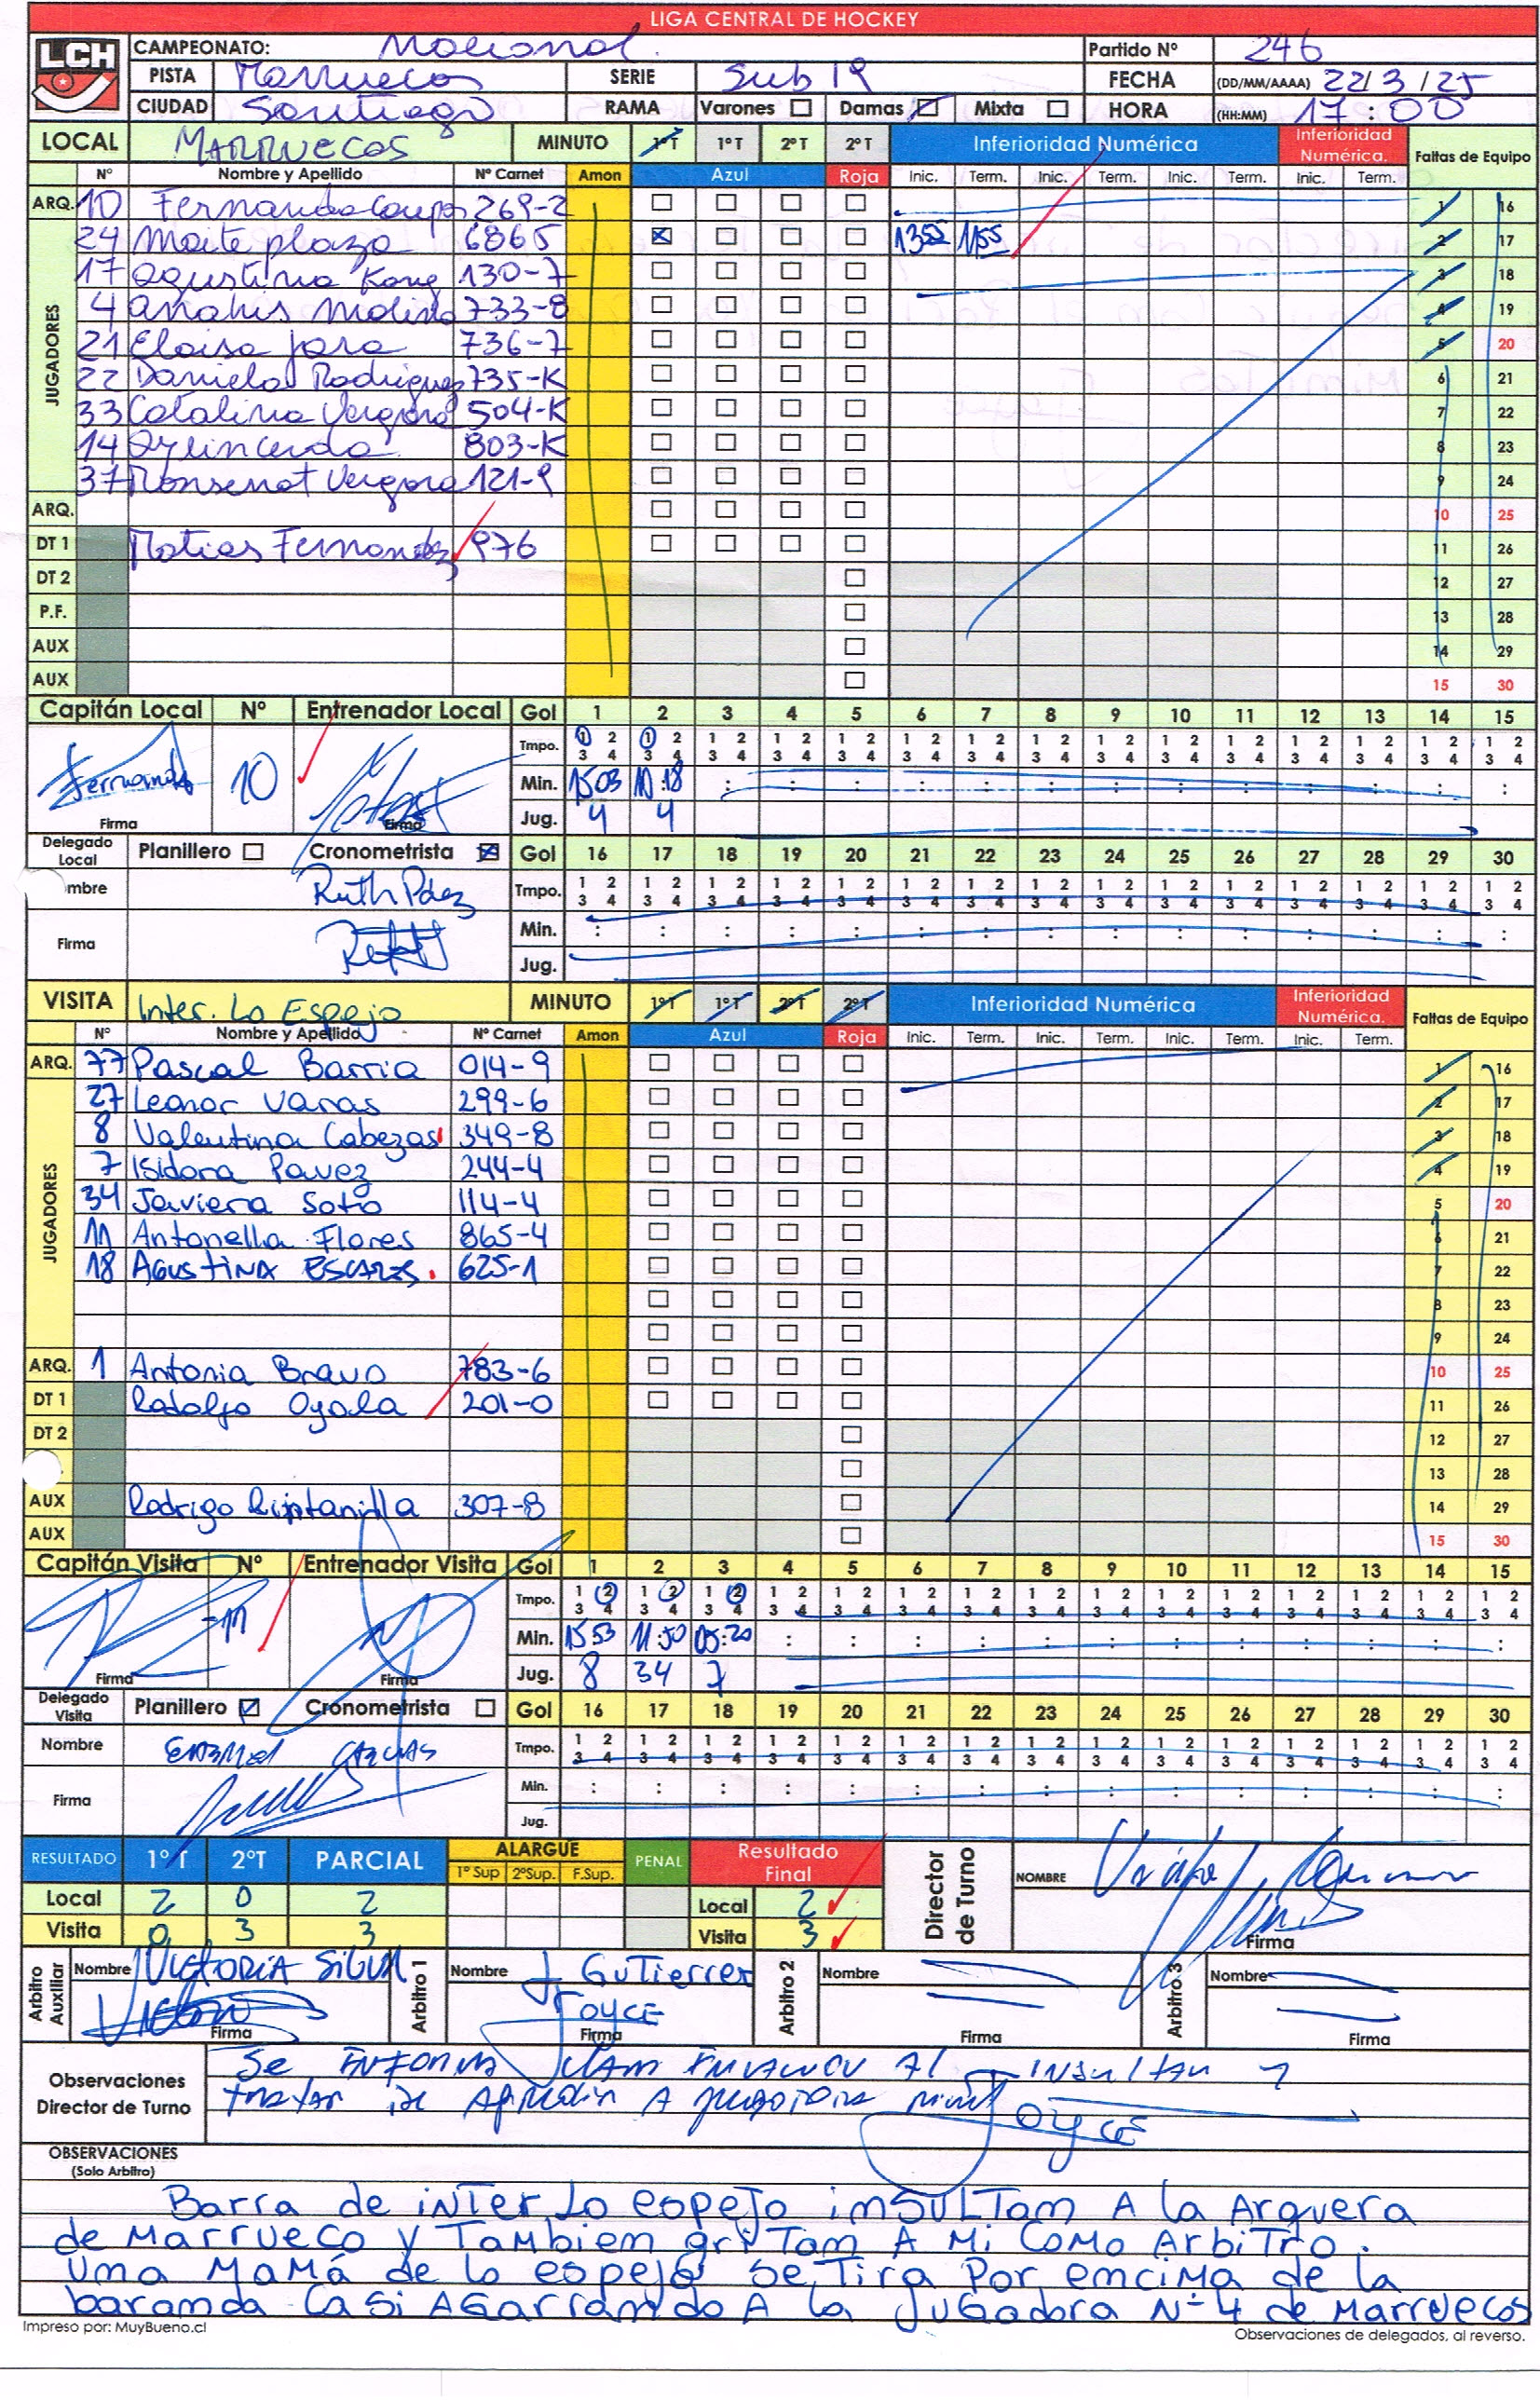 LIGA CENTRAL DE HOCKEY
LCH
CAMPEONATO: Nacional. Partido Nº 246
PISTA Marruecos SERIE Sub 19 FECHA (DD/MM/AAAA) 22/3/25
CIUDAD Santiago RAMA Varones Damas Mixta HORA (HH:MM) 17:00
LOCAL MARRUECOS MINUTO 1ºT 1ºT 2ºT 2ºT Inferioridad Numérica Inferioridad Numérica. Faltas de Equipo
Nº Nombre y Apellido Nº Carnet Amon Azul Roja Inic. Term. Inic. Term. Inic. Term. Inic. Term.
JUGADORES
ARQ. 10 Fernanda 269-2 1 16
24 Maite plaza 6865 1355 1155 2 17
17 Agustina Kong 130-7 3 18
4 anahis Molina 733-8 4 19
21 Eloisa Jara 736-7 5 20
22 Daniela Rodriguez 735-K 6 21
33 Catalina Vergara 504-K 7 22
14 803-K 8 23
37 Monserrat Vergara 121-9 9 24
ARQ. 10 25
DT 1 Matias Fernandez 976 11 26
DT 2 12 27
P.F. 13 28
AUX 14 29
AUX 15 30
Capitán Local Nº Entrenador Local Gol 1 2 3 4 5 6 7 8 9 10 11 12 13 14 15
Tmpo. 1 2 3 4 1 2 3 4 1 2 3 4 1 2 3 4 1 2 3 4 1 2 3 4 1 2 3 4 1 2 3 4 1 2 3 4 1 2 3 4 1 2 3 4 1 2 3 4 1 2 3 4 1 2 3 4 1 2 3 4
Fernanda 10 Min. 15 03 10:18
Firma Firma Jug. 4 4
Delegado Local Planillero Cronometrista Gol 16 17 18 19 20 21 22 23 24 25 26 27 28 29 30
mbre Ruth Páez Tmpo. 1 2 3 4 1 2 3 4 1 2 3 4 1 2 3 4 1 2 3 4 1 2 3 4 1 2 3 4 1 2 3 4 1 2 3 4 1 2 3 4 1 2 3 4 1 2 3 4 1 2 3 4 1 2 3 4 1 2 3 4
Firma Min.
Jug.
VISITA Inter. Lo Espejo MINUTO 1ºT 1ºT 2ºT 2ºT Inferioridad Numérica Inferioridad Numérica. Faltas de Equipo
Nº Nombre y Apellido Nº Carnet Amon Azul Roja Inic. Term. Inic. Term. Inic. Term. Inic. Term.
JUGADORES
ARQ. 77 Pascal Barria 014-9 1 16
27 Leonor Varas 299-6 2 17
8 Valentina Cabezas 349-8 3 18
7 Isidora Pavez 244-4 4 19
34 Javiera Soto 114-4 5 20
11 Antonella Flores 865-4 6 21
18 AGUSTINA 625-1 7 22
8 23
9 24
ARQ. 1 Antonia Bravo 783-6 10 25
DT 1 Rodolfo Oyola 201-0 11 26
DT 2 12 27
13 28
AUX Rodrigo 307-8 14 29
AUX 15 30
Capitán Visita Nº Entrenador Visita Gol 1 2 3 4 5 6 7 8 9 10 11 12 13 14 15
Tmpo. 1 2 3 4 1 2 3 4 1 2 3 4 1 2 3 4 1 2 3 4 1 2 3 4 1 2 3 4 1 2 3 4 1 2 3 4 1 2 3 4 1 2 3 4 1 2 3 4 1 2 3 4 1 2 3 4 1 2 3 4
11 Min. 15 53 11:50 05:20
Firma Firma Jug. 8 34 7
Delegado Visita Planillero Cronometrista Gol 16 17 18 19 20 21 22 23 24 25 26 27 28 29 30
Nombre Tmpo. 1 2 3 4 1 2 3 4 1 2 3 4 1 2 3 4 1 2 3 4 1 2 3 4 1 2 3 4 1 2 3 4 1 2 3 4 1 2 3 4 1 2 3 4 1 2 3 4 1 2 3 4 1 2 3 4 1 2 3 4
Firma Min.
Jug.
RESULTADO 1ºT 2ºT PARCIAL ALARGUE PENAL Resultado Final Director de Turno NOMBRE
1º Sup 2ºSup. F.Sup.
Local 2 0 2 Local 2
Visita 0 3 3 Visita 3 Firma
Arbitro Auxiliar Nombre VICTORIA SILVA Arbitro 1 Nombre J GUTierrez Arbitro 2 Nombre Arbitro 3 Nombre
JOYCE
Firma Firma Firma Firma
Observaciones Director de Turno Se INFORMA INSULTAN
A JOYCE
OBSERVACIONES
(Solo Arbitro)
Barra de iNTer Lo espeJo imSULTam A la Arquera
de MArrueco y TaMbiem griTam A Mi CoMo ArbiTro.
uma MaMá de lo espeJo se Tira Por enciMa de la
baramda CaSi AGarramdo A la JuGadora Nº 4 de Marruecos
Impreso por: MuyBueno.cl
Observaciones de delegados, al reverso.